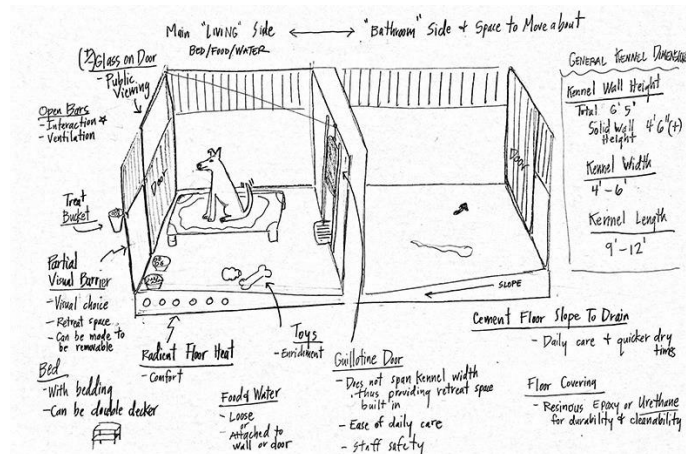 Main "LIVING" Side ←→ "Bathroom" Side & Space to Move about
BED/FOOD/WATER
(½) Glass on Door
- Public
Viewing
Open Bars
- Interaction ☆
- Ventilation
Treat
Bucket
Partial
Visual Barrier
- Visual choice
- Retreat space
- Can be made to
be removable
Bed
- With bedding
- Can be double decker
DOOR
DOOR
Radient Floor Heat
- Comfort
Food & Water
- Loose
or
- Attached to
wall or door
Toys
- Enrichment
Guillotine Door
- Does not span kennel width
, thus providing retreat space
built in
- Ease of daily care
- Staff safety
← SLOPE
Cement Floor Slope To Drain
- Daily care & quicker dry
times
Floor Covering
- Resinous Epoxy or Urethane
for durability & cleanability
GENERAL KENNEL DIMENSION
Kennel Wall Height
Total 6' 5"
Solid Wall 4' 6" (+)
Height
Kennel Width
4' - 6'
Kennel Length
9' - 12'